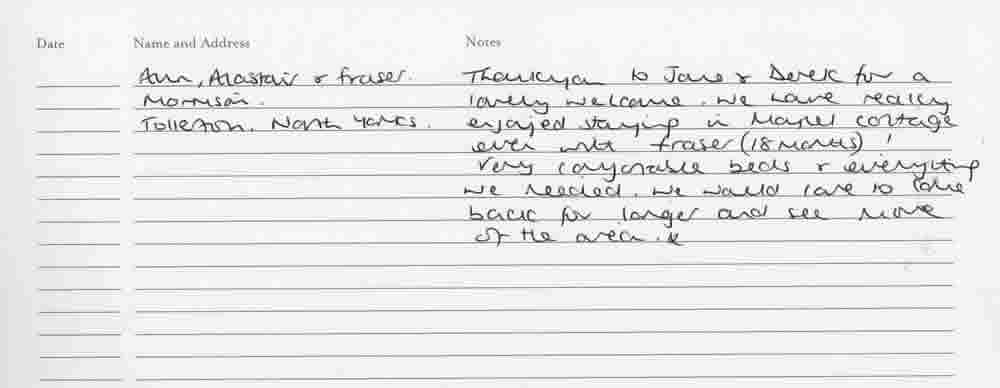 Date Name and Address Notes
Ann, Alastair & Fraser. Thankyou to Jane & Derek for a
Morrison. lovely welcome. We have really
Tollerton. North Yorks. enjoyed staying in Maple cottage
even with Fraser (18 months) !
Very comfortable beds & everything
we needed. We would love to come
back for longer and see more
of the area. x